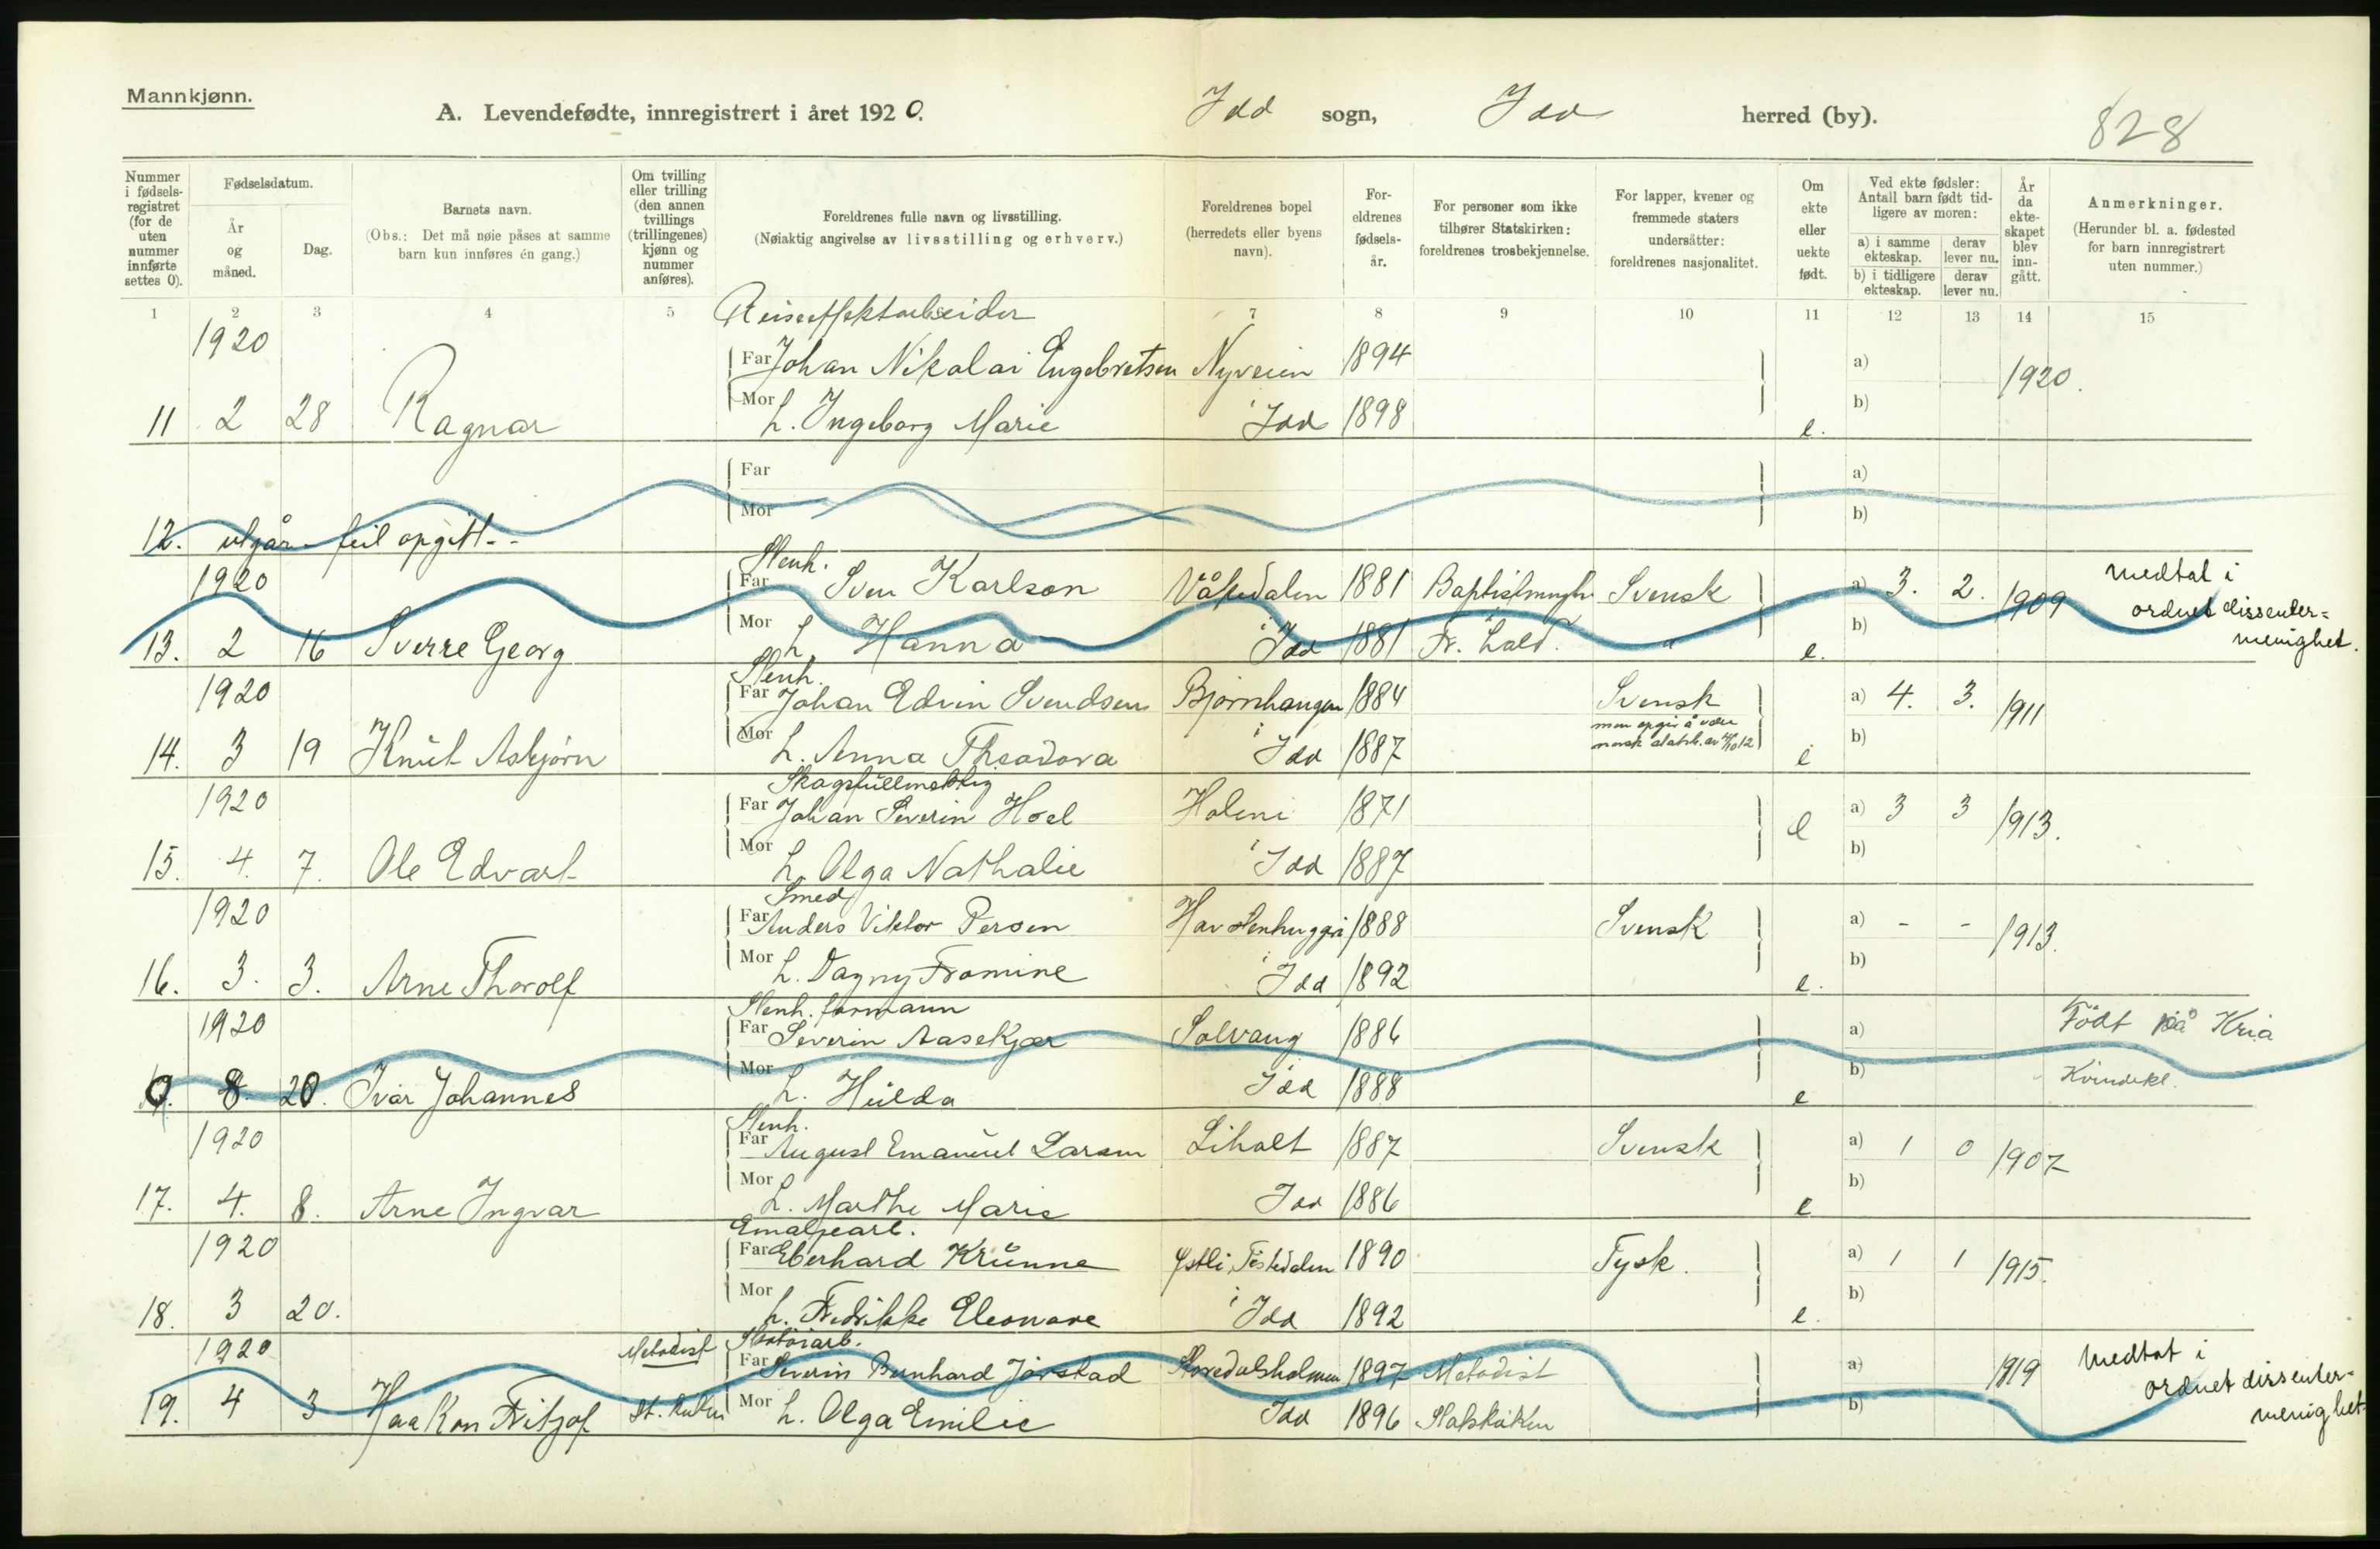 Mannkjønn.
A. Levendefødte, innregistrert i året 1920.
Idd sogn, Idd herred (by).
828
Nummer i fødsels-registret (for de uten nummer innførte settes 0).
Fødselsdatum.
År og måned.
Dag.
Barnets navn.
(Obs.: Det må nøie påses at samme barn kun innføres én gang.)
Om tvilling eller trilling (den annen tvillings (trillingenes) kjønn og nummer anføres).
Foreldrenes fulle navn og livsstilling.
(Nøiaktig angivelse av livsstilling og erhverv.)
Foreldrenes bopel (herredets eller byens navn).
For-eldrenes fødsels-år.
For personer som ikke tilhører Statskirken: foreldrenes trosbekjennelse.
For lapper, kvener og fremmede staters undersåtter: foreldrenes nasjonalitet.
Om ekte eller uekte født.
Ved ekte fødsler: Antall barn født tid-ligere av moren:
a) i samme ekteskap.
derav lever nu.
b) i tidligere ekteskap.
derav lever nu.
År da ekte-skapet blev inn-gått.
Anmerkninger.
(Herunder bl. a. fødested for barn innregistrert uten nummer.)
1 2 3 4 5 7 8 9 10 11 12 13 14 15
Reiseeffektarbeider
1920 Far Johan Nikolai Engebretsen Nyveien 1894 a) 1920.
11 2 28 Ragnar Mor h. Ingeborg Marie i Idd 1898 e. b)
Far a)
Mor b)
12. utgår feil opgitt
Stenh.
1920 Far Sven Karlson 1881 Svensk a) 3. 2. 1909 medtat i
13. 2 16 Sverre Georg Mor h. Hanna i Idd 1881 e. b) ordnet dissenter-
menighet.
Stenh.
1920 Far Johan Edvin Svendsen Bjørnhaugen 1884 Svensk a) 4. 3. 1911
men opgir å være
14. 3 19 Knut Asbjørn Mor h. Anna Theodora i Idd 1887 e b)
Skogsfullmektig
1920 Far Johan Severin Hoel Holeni 1871 e a) 3 3 1913.
15. 4. 7. Ole Edvart Mor h. Olga Nathalie i Idd 1887 b)
Smed
1920 Far Anders Viktor Persen Hov stenhuggeri 1888 Svensk a) - - 1913.
16. 3. 3. Arne Thorolf Mor h. Dagny Framine i Idd 1892 e. b)
Stenh. formann
1920 Far Severin Aasekjær Solvang 1886 a) Født på Kria
0. 8. 20. Ivar Johannes Mor h. Hulda Idd 1888 e b) Kvindekl.
Stenh.
1920 Far August Emanuel Larsen Liholt 1887 Svensk a) 1 0 1907
17. 4. 8. Arne Ingvar Mor h. Marthe Marie Idd 1886 e b)
Emaljearb.
1920 Far Eberhard Krünne Tistedalen 1890 Tysk. a) 1 1 1915.
18. 3 20. Mor h. Fredrikke Eleonore i Idd 1892 e. b)
1920 Metodist Far Severin Bernhard Jørstad 1897 Metodist a) 1919 medtat i
19. 4 3 Haakon Fritjof St. kirken Mor h. Olga Emilie Idd 1896 Statskirken b) ordnet dissenter-
menighet